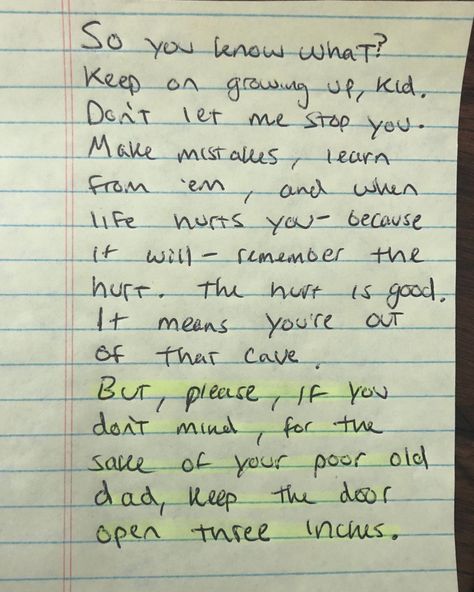 So you know what?
Keep on growing up, kid.
Don't let me stop you.
Make mistakes, learn
from 'em, and when
life hurts you- because
it will- remember the
hurt. The hurt is good.
It means you're out
of that cave.
But, please, if you
don't mind, for the
sake of your poor old
dad, keep the door
open three inches.